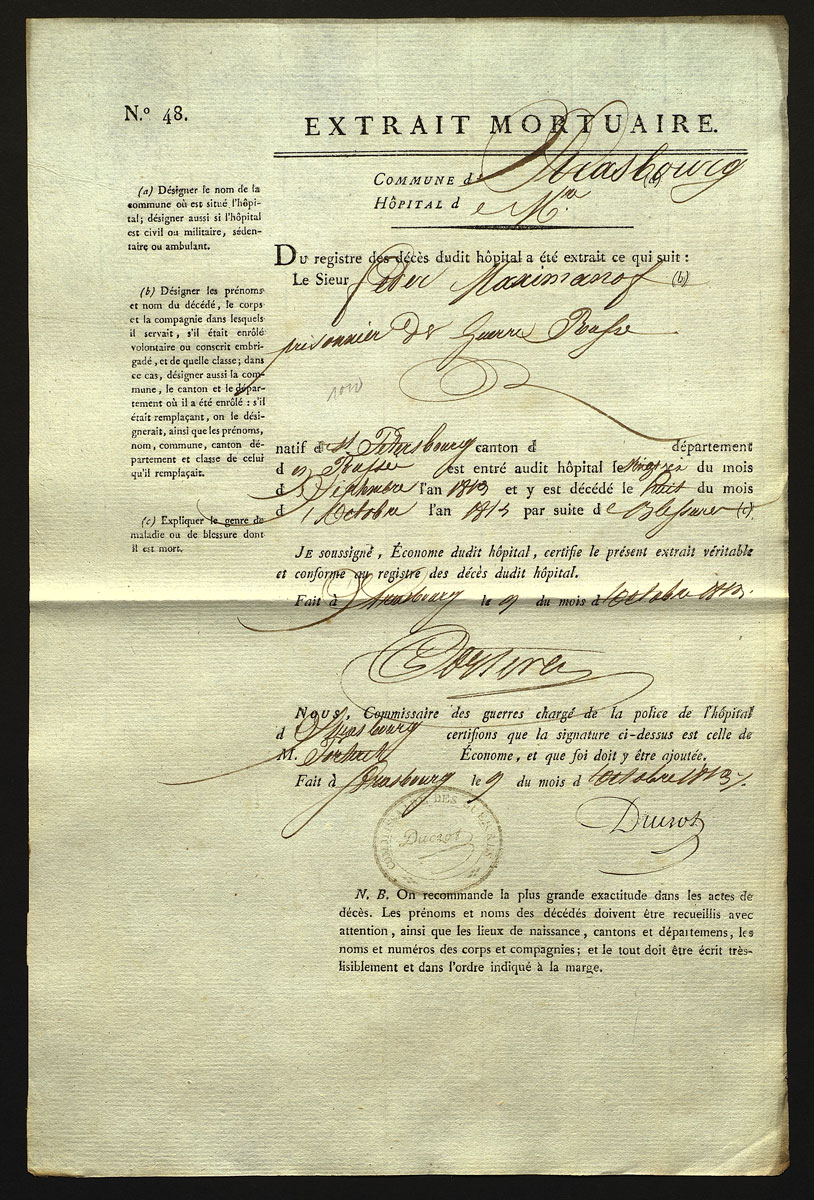 N.º 48.
EXTRAIT MORTUAIRE.
COMMUNE de Strasbourg (a)
HÔPITAL d e M.re
(a) Désigner le nom de la
commune où est situé l'hôpi-
tal; désigner aussi si l'hôpital
est civil ou militaire, séden-
taire ou ambulant.
(b) Désigner les prénoms
et nom du décédé, le corps
et la compagnie dans lesquels
il servait, s'il était enrôlé
volontaire ou conscrit embri-
gadé, et de quelle classe; dans
ce cas, désigner aussi la com-
mune, le canton et le dépar-
tement où il a été enrôlé: s'il
était remplaçant, on le dési-
gnerait, ainsi que les prénoms,
nom, commune, canton dé-
partement et classe de celui
qu'il remplaçait.
(c) Expliquer le genre de
maladie ou de blessure dont
il est mort.
DU registre des décès dudit hôpital a été extrait ce qui suit:
Le Sieur Peter Maximanof (b)
prisonnier de Guerre Russe
natif de St Petersbourg canton d département
d en Russie est entré audit hôpital le du mois
d Septembre l'an 1813 et y est décédé le huit du mois
d'Octobre l'an 1813 par suite de Blessures (c).
JE soussigné, Économe dudit hôpital, certifie le présent extrait véritable
et conforme au registre des décès dudit hôpital.
Fait à Strasbourg le 9 du mois d'Octobre 1813.
NOUS, Commissaire des guerres chargé de la police de l'hôpital
d Strasbourg certifions que la signature ci-dessus est celle de
M. Économe, et que foi doit y être ajoutée.
Fait à Strasbourg le 9 du mois d'Octobre 1813.
Ducrot
COMMISSAIRE DES GUERRES
Ducrot
N. B. On recommande la plus grande exactitude dans les actes de
décès. Les prénoms et noms des décédés doivent être recueillis avec
attention, ainsi que les lieux de naissance, cantons et départemens, les
noms et numéros des corps et compagnies; et le tout doit être écrit très-
lisiblement et dans l'ordre indiqué à la marge.